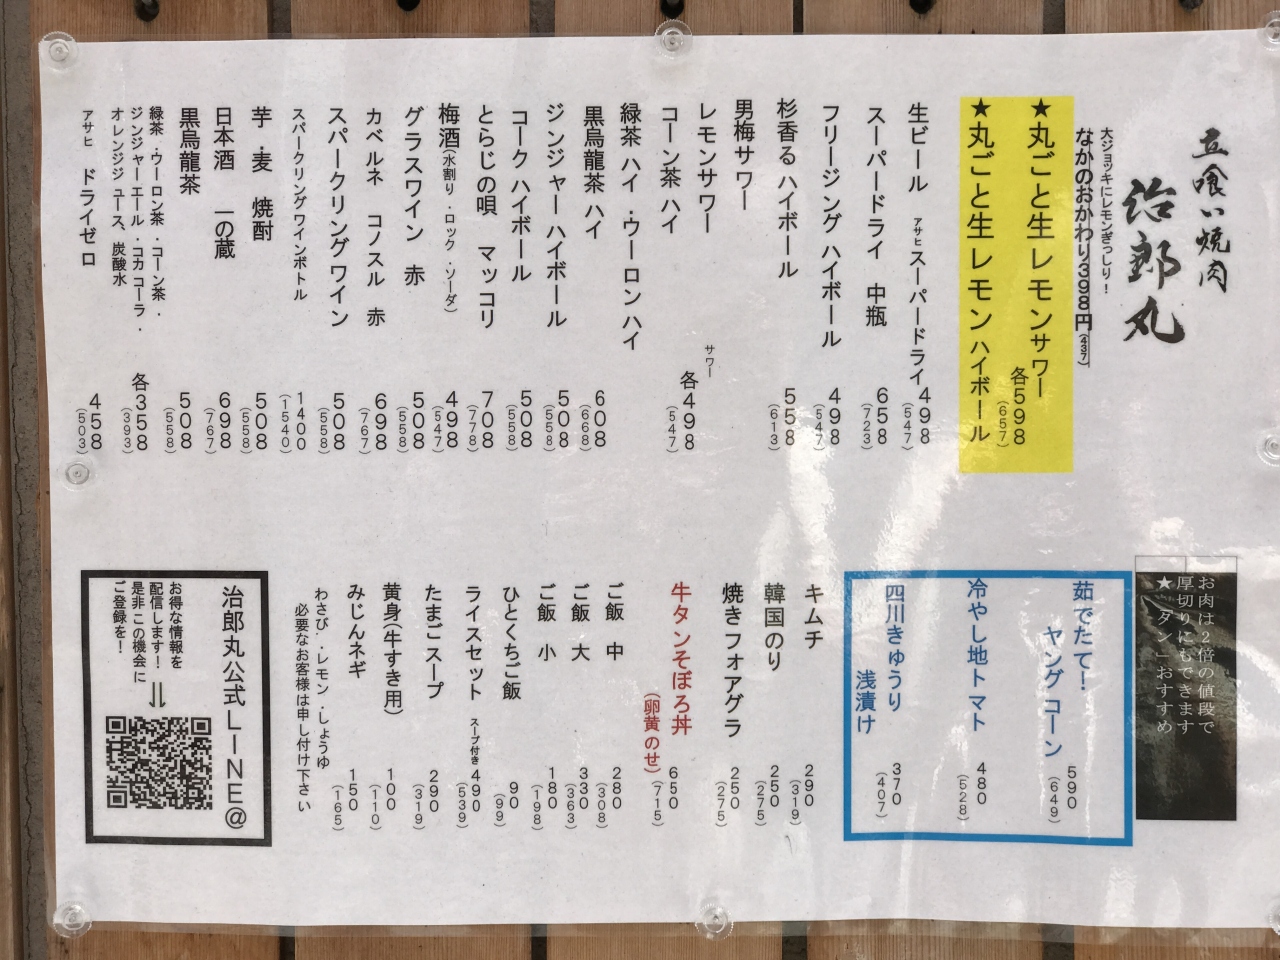 立喰い焼肉
治郎丸
大ジョッキにレモンぎっしり!
なかのおかわり398円(437)
★丸ごと生レモンサワー
各598(657)
★丸ごと生レモンハイボール
生ビール アサヒスーパードライ 498(547)
スーパードライ 中瓶 658(723)
フリージングハイボール 498(547)
杉香るハイボール 558(613)
男梅サワー
レモンサワー
サワー
コーン茶ハイ 各498(547)
緑茶ハイ・ウーロンハイ
黒烏龍茶ハイ 608(668)
ジンジャーハイボール 508(558)
コークハイボール 508(558)
とらじの唄 マッコリ 708(778)
梅酒(水割り・ロック・ソーダ) 498(547)
グラスワイン 赤 508(558)
カベルネ コノスル 赤 698(767)
スパークリングワイン 508(558)
スパークリングワインボトル 1400(1540)
芋・麦 焼酎 508(558)
日本酒 一の蔵 698(767)
黒烏龍茶 508(558)
緑茶・ウーロン茶・コーン茶・
ジンジャーエール・コカコーラ・
オレンジジュース、炭酸水 各358(393)
アサヒ ドライゼロ 458(503)
お肉は2倍の値段で
厚切りにもできます
★「タン」おすすめ
茹でたて!
ヤングコーン 590(649)
冷やし地トマト 480(528)
四川きゅうり
浅漬け 370(407)
キムチ 290(319)
韓国のり 250(275)
焼きフォアグラ 250(275)
牛タンそぼろ丼 650(715)
(卵黄のせ)
ご飯 中 280(308)
ご飯 大 330(363)
ご飯 小 180(198)
ひとくちご飯 90(99)
ライスセット スープ付き 490(539)
たまごスープ 290(319)
黄身(牛すき用) 100(110)
みじんネギ 150(165)
わさび・レモン・しょうゆ
必要なお客様は申し付け下さい
治郎丸公式LINE@
お得な情報を
配信します!
是非この機会に
ご登録を!